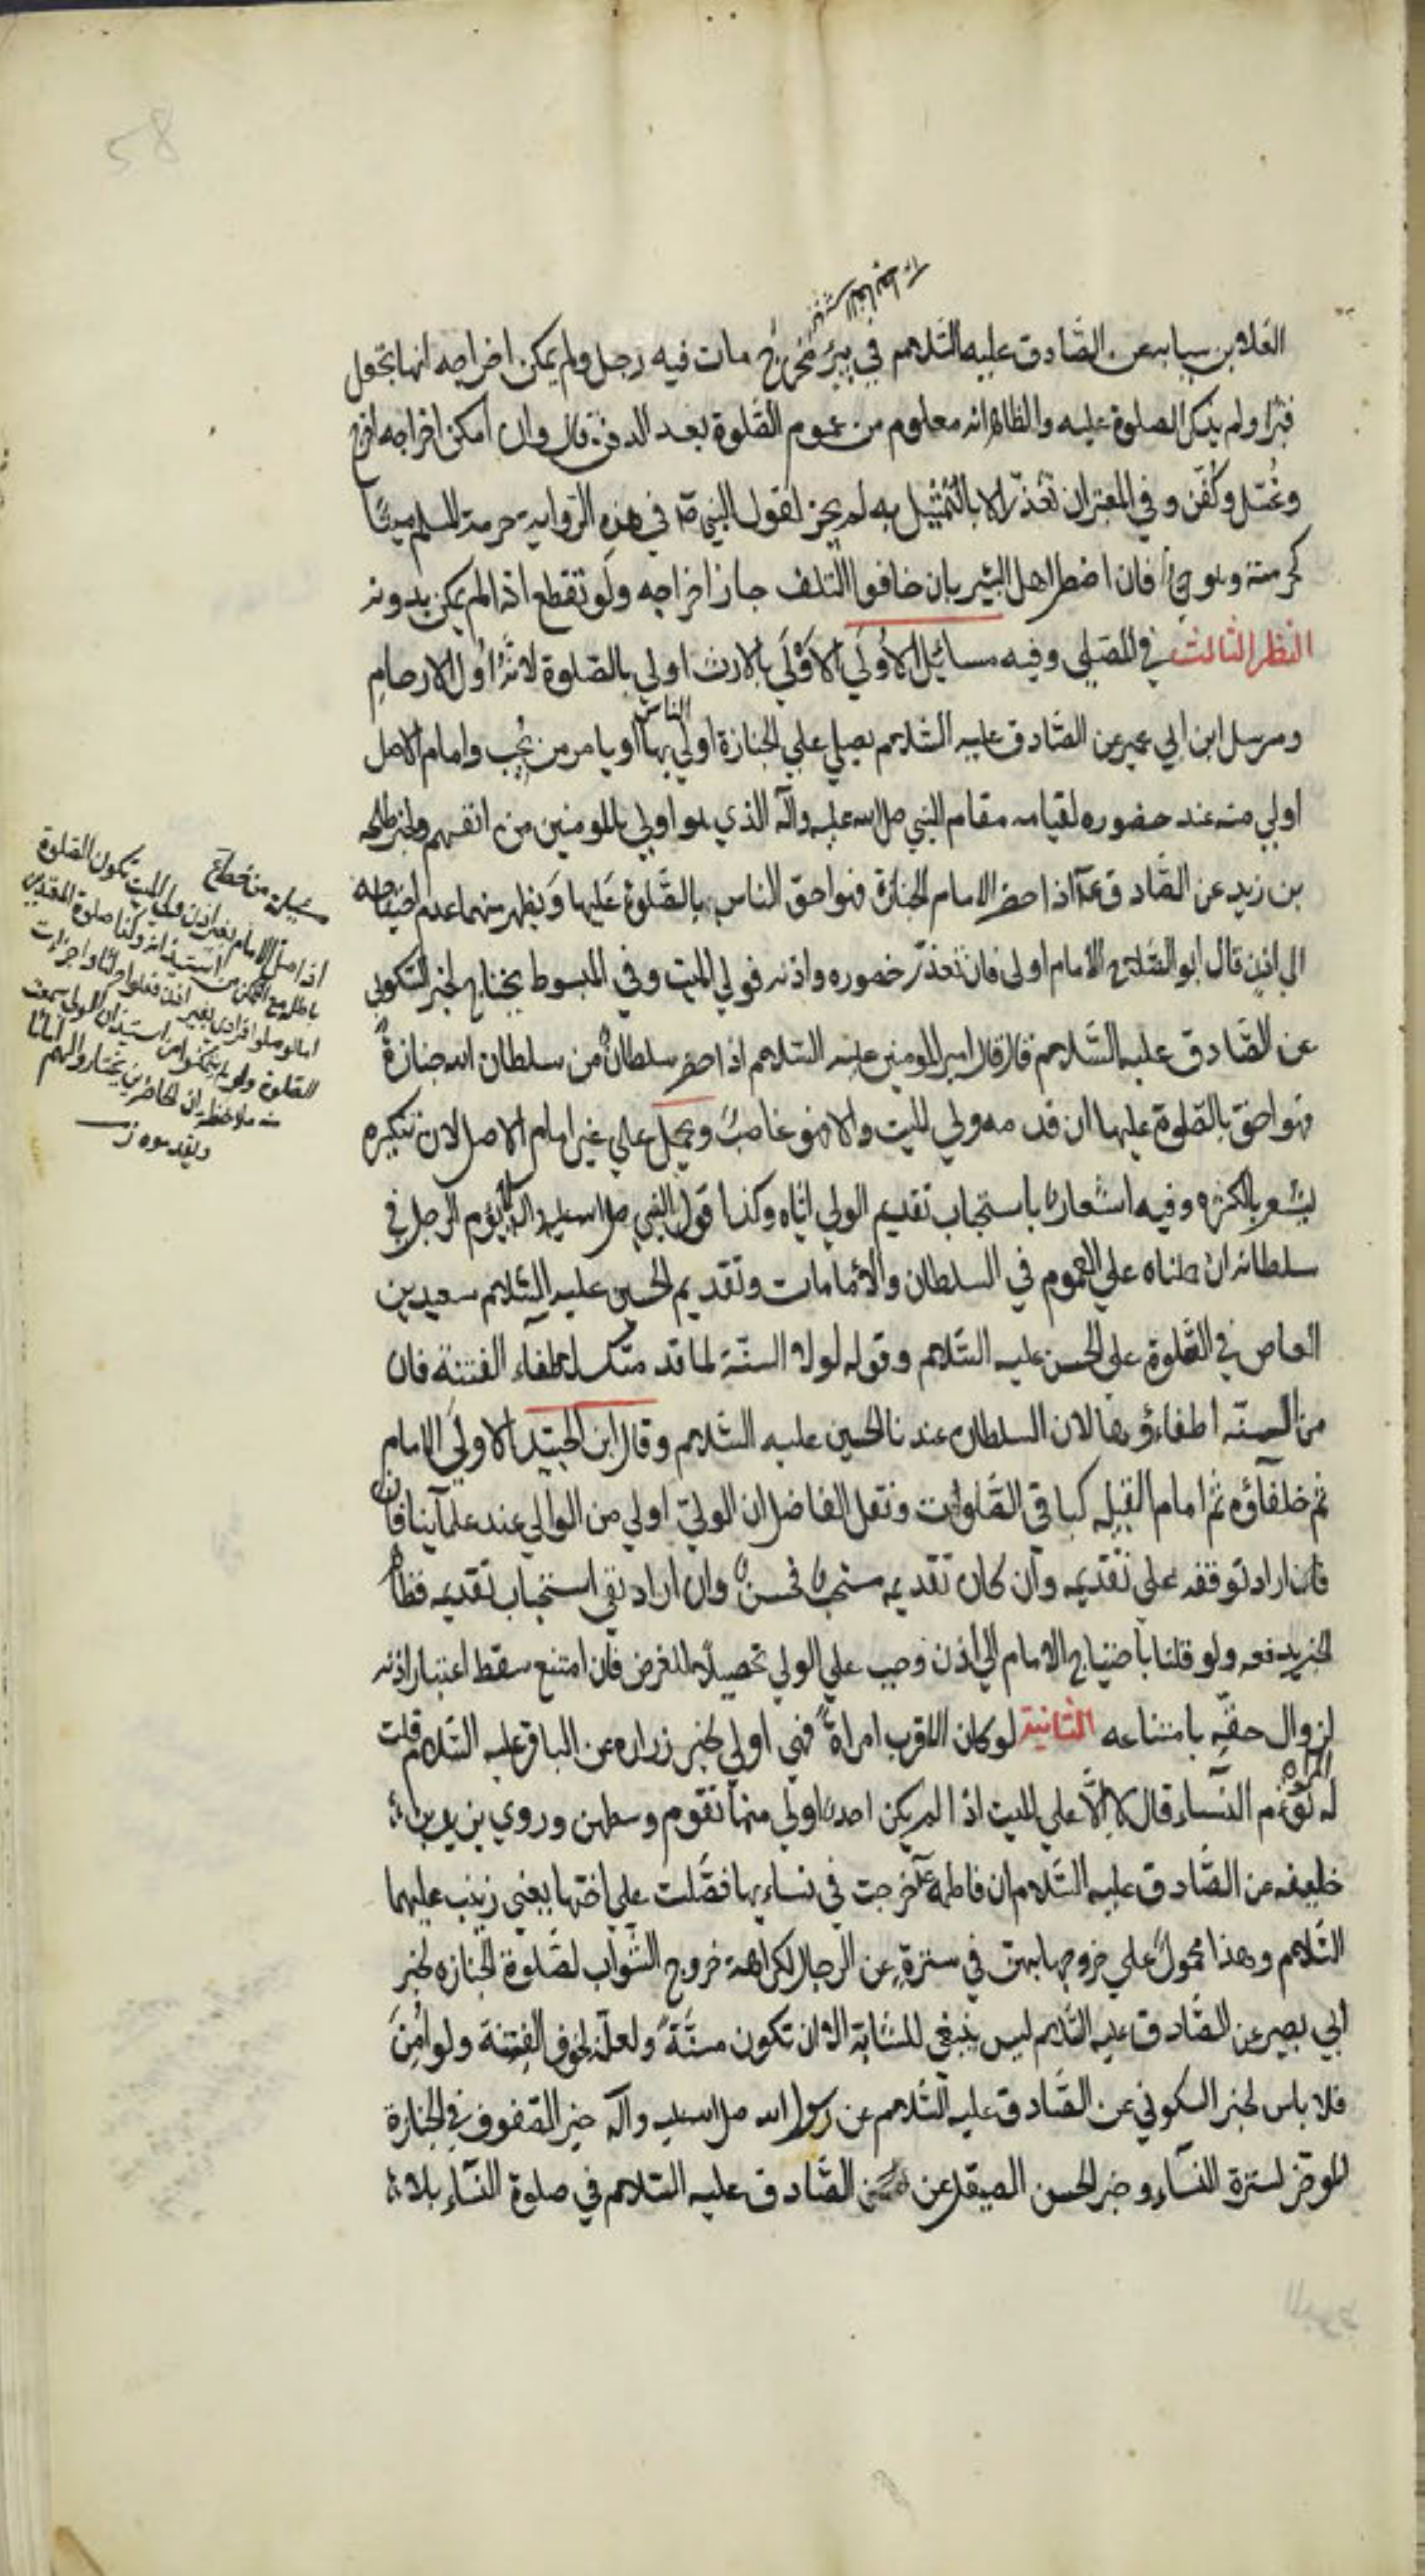 58
العلا بن سيابه عن الصادق عليه السلام في بئر مخرج مات فيه رجل ولم يمكن اخراجه انها تجعل
قبرا ولم يذكر الصلوة عليه والظاهر انه معلوم من عموم الصلوة بعد الدفن قال وان امكن اخراجه اخرج
وغسّل وكُفّن وفي المعتبر ان تعذّر الا بالتمثيل به لم يجز لقول النبي ص في هذه الرواية حرمة المسلم ميتًا
كحرمته وهو حي فان اضطر اهل البئر بان خافوا التلف جاز اخراجه ولو تقطع اذا لم يمكن بدونه
النظر الثالث في المصلي وفيه مسائل الاُولَي الاَوْلَي بالارث اولي بالصلوة لانّه اُول الارحام
ومرسل ابن ابي عمير عن الصّادق عليه السّلام يصلي علي الجنازة اولي الناس بها او يامر من يُحِب وامام الاصل
اولي منه عند حضوره لقيامه مقام النبي صلى الله عليه وآله الذي هو اولي بالمومنين من انفسهم ولخبر طلحه
بن زيد عن الصّادق ع اذا حضر الامام الجنازة فهو احق الناس بالصّلوة عَليها وَيظهر منهما عدم احتياجه
الي اذن قال ابو الصّلاح الامام اولى فان تعذّر حضوره واذنه فولي الميت وفي المبسوط يحتاج لخبر السكوني
عن الصّادق عليه السّلام قال قال امير المومنين عليه السّلام اذا حضر سلطان من سلطان الله جنازة
فهو احق بالصّلوة عليها ان قدمه ولي الميت والا فهو غاصبٌ ويحمل علي غير امام الاصل لان تنكيره
يشعر بالكثره وفيه اشعارٌ باستحباب تقديم الولي ايّاه وكذا قول النبي صلى الله عليه وآله لا يؤم الرجل في
سلطانه ان حملناه علي العموم في السلطان والأمامات وتقديم الحسين عليه السّلام سعيد بن
العاص في الصّلوة علي الحسن عليه السّلام وقوله لولا السنّة لما قدمتك لاطفاء الفتنة فان
من السنّه اطفاؤها لان السلطان عندنا الحسين عليه السّلام وقال ابن الجنيد الاولَي الامام
ثم خلفآؤه ثم امام القبيله كباقي الصّلوات ونقل الفاضل ان الوليّ اولي من الوالي عند علمآينا فان
فان اراد توقفه علي تقديمه وان كان تقديمه مستحبًا فحسن وان اراد نفي استحباب تقديمه فظاهر
الخبر يدفعه ولو قلنا باحتياج الامام الي اذن وجب علي الولي تحصيلا للغرض فان امتنع سقط اعتبار اذنه
لزوال حقّه بامتناعه الثانية لو كان الاقرب امراة فهي اولي لخبر زراره عن الباقر عليه السّلام قلت
له المراه تؤم النسآء قال لا الّا علي الميت اذا لم يكن احد اولي منها تقوم وسطهن وروي يزيد بن
خليفه عن الصّادق عليه السّلام ان فاطمه ع خرجت في نساءيها فصَّلت علي اختها يعني زينب عليهما
السّلام وهذا محمولٌ علي خروجها بهنّ في سترةٍ عن الرجال لكراهة خروج الشواب لصَّلوة الجنازه لخبر
ابي بصير عن الصّادق عليه السّلام ليس ينبغي للشابة الا ان تكون مسنّة ولعلّه لخوف الفتنة ولو اُمِنَ
فلا باس لخبر السكوني عن الصّادق عليه السّلام عن رسول الله صلى الله عليه وآله خير الصفوف في الجنازة
الموخر لسترة النسآء وخبر الحسن الصيقل عن الصّادق عليه السّلام في صلوة النسآء بلا
اذا صلي الامام بغير اذن ولي الميت تكون الصّلوة
باطله مع التمكن من استيذانه وكذا صلوة المقتدين